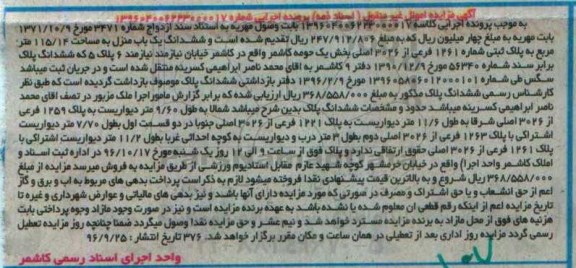 آگهی مزایده اموال غیر منقول ( اسناد ذمه ) پرونده اجرایی شماره ۱۳۹۶۰۴۰۰۶۲۲۳۰۰۰۰۱۷
به موجب پرونده اجرایی کلاسه ۱۳۹۶۰۴۰۰۶۲۲۳۰۰۰۰۱۷ بابت وصول مهریه به استناد سند ازدواج شماره ۳۴۷۱ مورخ ۱۳۷۱/۱۰/۹
بابت مهریه به مبلغ چهار میلیون ریال که به مبلغ ۲۴۷/۹۱۲/۸۰۶ ریال تقدیم شده است و ششدانگ یک باب منزل به مساحت ۱۱۵/۱۴ متر
مربع به پلاک ثبتی شماره ۱۲۶۱ فرعی از ۳۰۲۶ اصلی بخش یک حومه کاشمر واقع در کاشمر خیابان نیازمند نیازمند ۶ پلاک ۵ که ششدانگ پلاک
برابر سند شماره ۵۶۳۴۰ مورخ ۱۳۹۰/۱۲/۹ دفتر ۹ کاشمر به آقای محمد ناصر ابراهیمی کسرینه منتقل شده است و در جریان ثبت میباشد
سپس طی شماره ۱۳۹۶۰۵۸۰۶۰۱۲۰۰۰۱۰۱ مورخ ۱۳۹۶/۲/۹ دفتر بازداشتی ششدانگ پلاک موصوف بازداشت گردیده است که طبق نظر
کارشناس رسمی ششدانگ پلاک مذکور به مبلغ ۳۶۸/۵۵۸/۰۰۰ ریال ارزیابی شده که برابر گزارش مامور اجرا ملک مزبور در تصرف آقای محمد
ناصر ابراهیمی کسرینه میباشد حدود و مشخصات ششدانگ پلاک بدین شرح میباشد شمالا به طول ۹/۶۰ متر دیواریست به پلاک ۱۲۵۹ فرعی
از ۳۰۲۶ اصلی شرقا به طول ۱۱/۶ متر دیواریست به پلاک ۱۲۲۱ فرعی از ۳۰۲۶ اصلی جنوبا در دو قسمت اول بطول ۷/۷۰ متر دیواریست
اشتراکی با پلاک ۱۲۶۳ فرعی از ۳۰۲۶ اصلی دوم بطول ۳ متر درب و دیواریست به کوچه احداثی غربا بطول ۱۱/۲ متر دیواریست اشتراکی با
پلاک ۱۲۶۱ فرعی از ۳۰۲۶ اصلی حقوق ارتفاقی ندارد و پلاک فوق از ساعت ۹ الی ۱۲ روز یک شنبه مورخ ۹۶/۱۰/۱۷ در اداره ثبت اسناد و
املاک کاشمر واحد اجرا) واقع در خیابان خرمشهر کوچه شهید عازم مقابل استادیوم ورزشی از طریق مزایده به فروش میرسد مزایده از مبلغ
۳۶۸/۵۵۸/۰۰۰ ریال شروع و به بالاترین قیمت پیشنهادی نقدا فروخته میشود لازم به ذکر است پرداخت بدهی های مربوط به اب و برق و گاز
اعم از حق انشعاب و یا حق اشتراک و مصرف در صورتی که مورد مزایده دارای آنها باشند و نیز بدهی های مالیاتی و عوارض شهرداری و غیره تا
تاریخ مزایده اعم از اینکه رقم قطعی ان معلوم شده یا نشده باشد به عهده برنده مزایده است و نیز در صورت وجود مازاد وجوه پرداختی بابت
هزینه های فوق از محل مازاد به برنده مزایده مسترد خواهد شد و نیم عشر و حق مزایده نقدا وصول میگردد ضمنا چنانچه روز مزایده تعطیل
رسمی گردد مزایده روز اداری بعد از تعطیلی در همان ساعت و مکان مقرر برگزار خواهد شد. ۳۷۶ تاریخ انتشار : ۹۶/۹/۲۵
واحد اجرای اسناد رسمی کاشمر